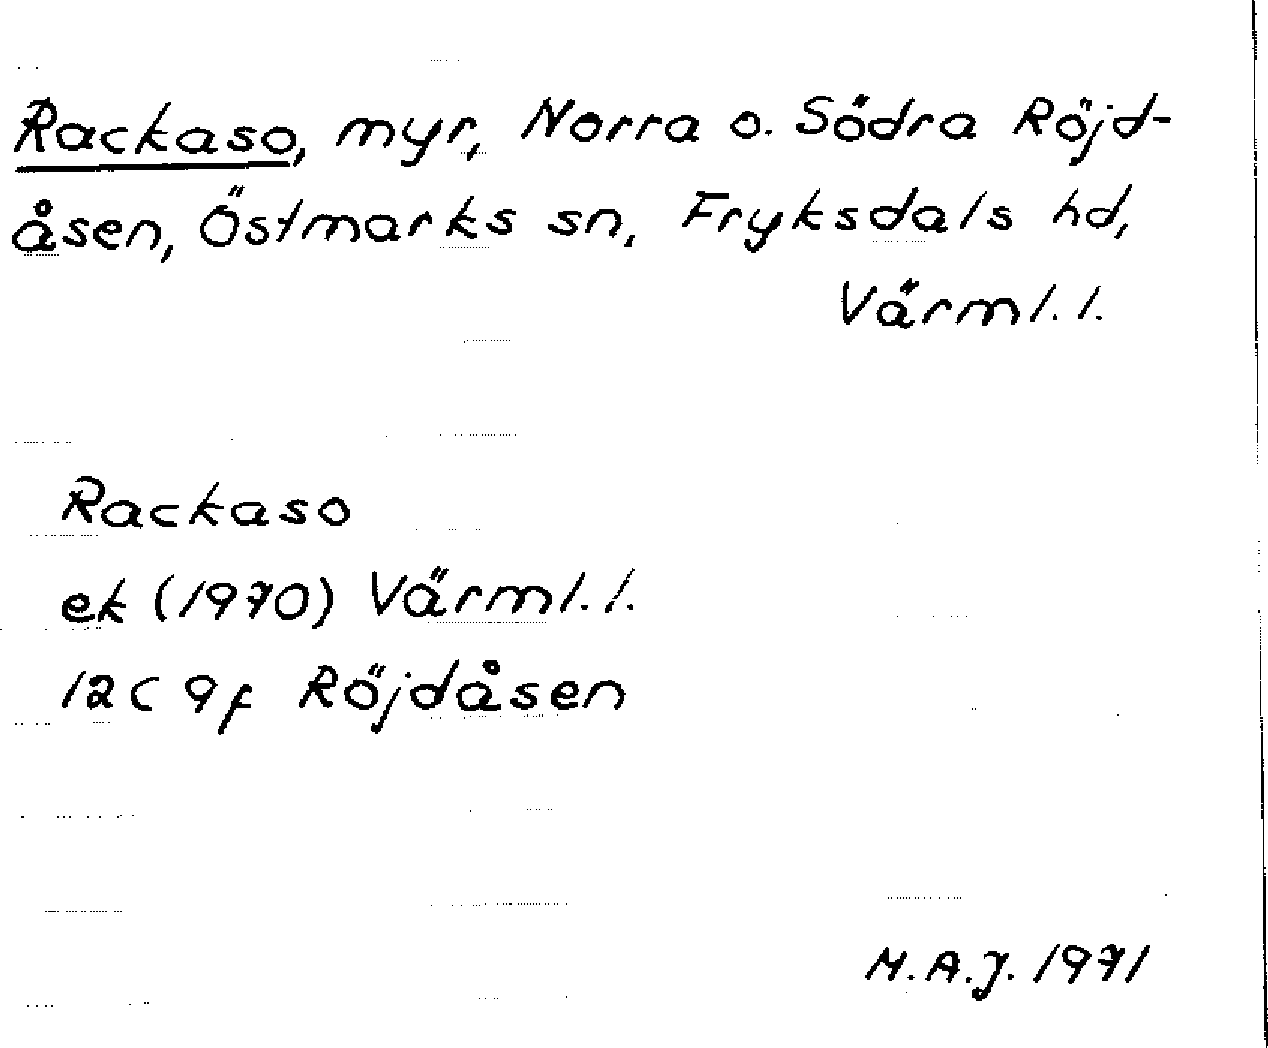 Rackaso, myr, Norra o. Södra Röjd-
åsen, Östmarks sn, Fryksdals hd,
Värml. l.
Rackaso
ek (1970) Värml. l.
12C 9f Röjdåsen
M.A.J. 1971